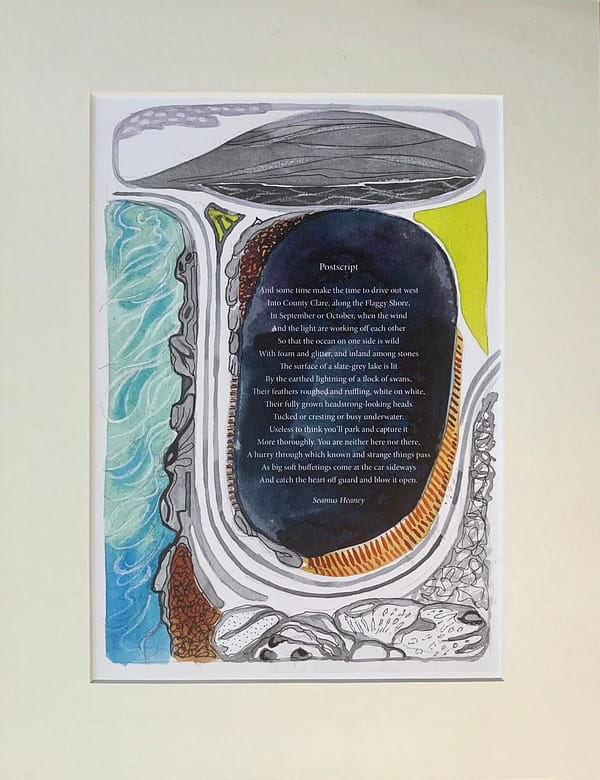 Postscript
And some time make the time to drive out west
Into County Clare, along the Flaggy Shore,
In September or October, when the wind
And the light are working off each other
So that the ocean on one side is wild
With foam and glitter, and inland among stones
The surface of a slate-grey lake is lit
By the earthed lightning of a flock of swans,
Their feathers roughed and ruffling, white on white,
Their fully grown headstrong-looking heads
Tucked or cresting or busy underwater.
Useless to think you'll park and capture it
More thoroughly. You are neither here nor there,
A hurry through which known and strange things pass
As big soft buffetings come at the car sideways
And catch the heart off guard and blow it open.
Seamus Heaney